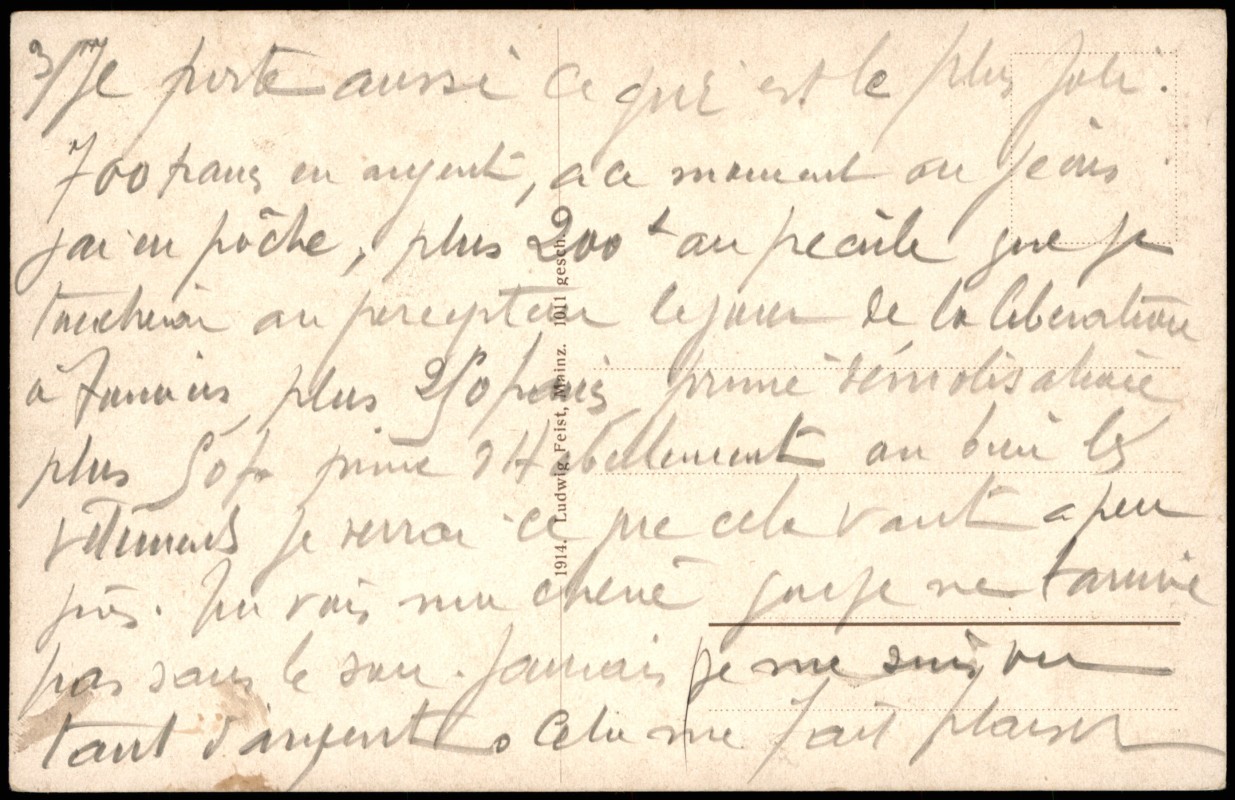 3/ Je porte aussi ce qui est le plus joli.
700 francs en argent, a ce moment ou j'ecris
j'ai en pôche, plus 200 f au pecule que je
toucherai au percepteur le jour de la liberation
a plus 250 francs prime démobilisatrice
plus 50 f prime d'Habillement ou bien les
vêtements je verrai ce que cela vaut a peu
près. Tu vois ma que je ne t'arrive
pas sans le sou. Jamais je me suis vu
tant d'argent. Cela me fait plaisir
1914. Ludwig Feist, Mainz. 1011 gesch.